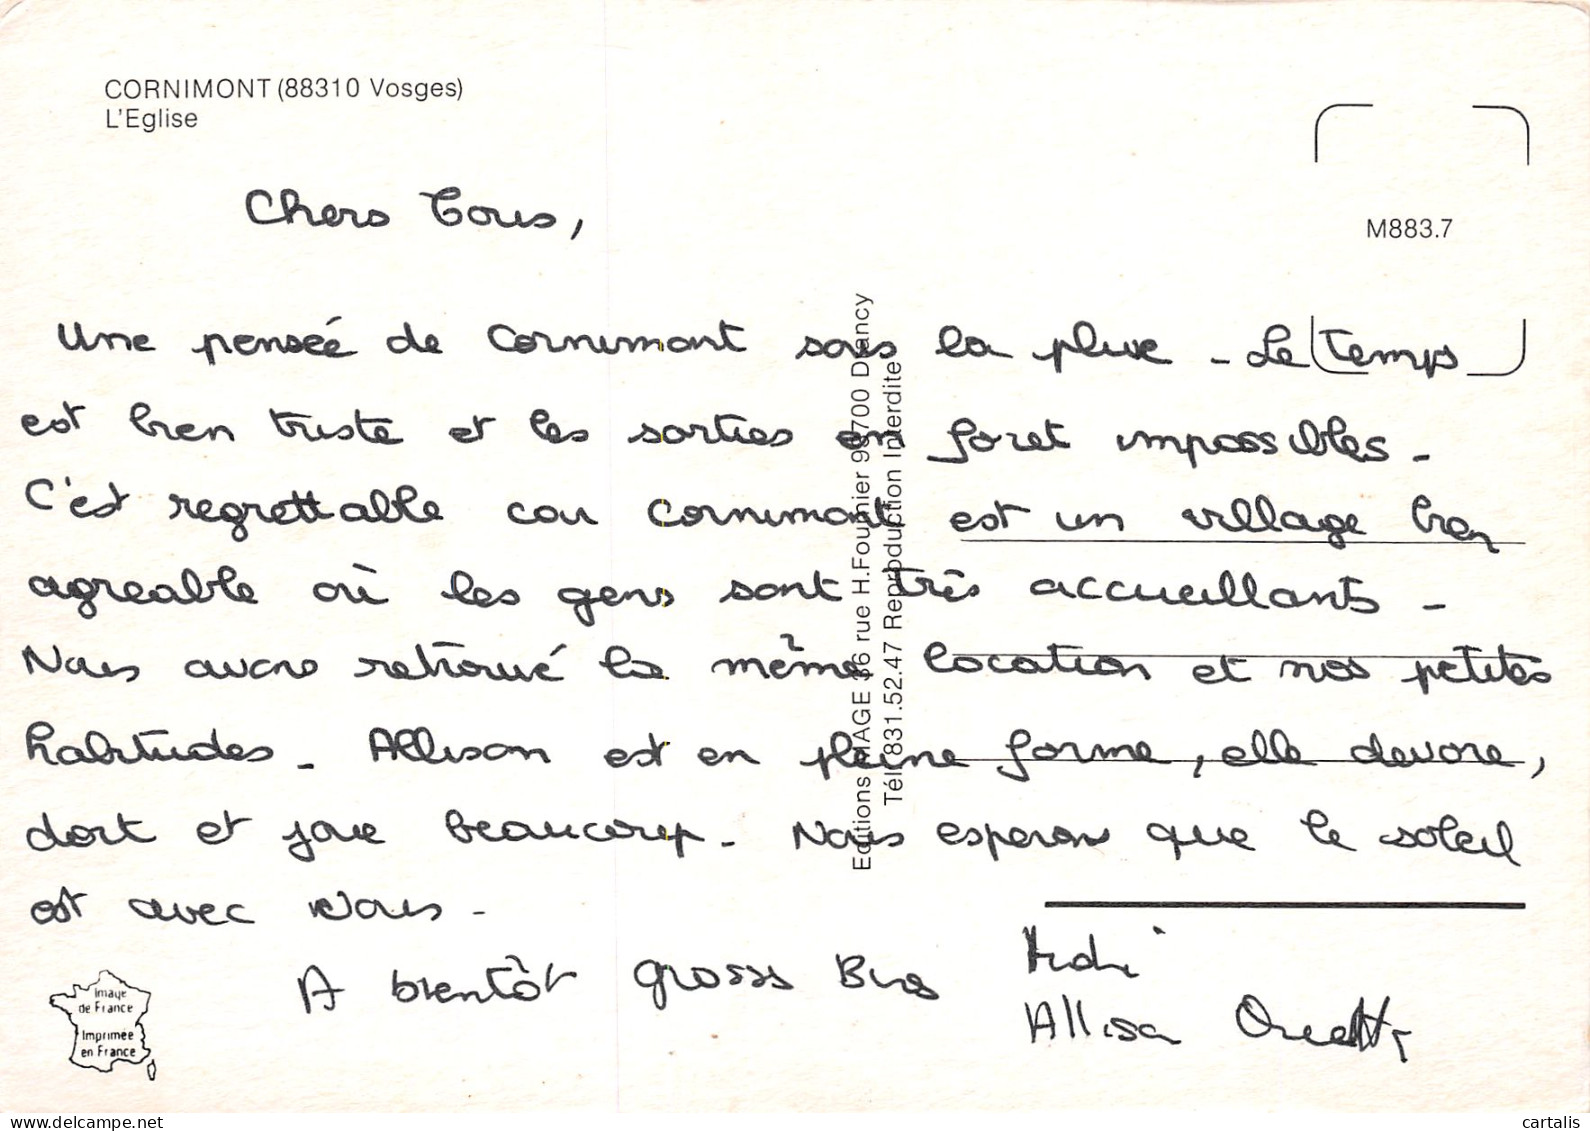 CORNIMONT (88310 Vosges)
L'Eglise
M883.7
Chers Tous,
Une pensée de Cornimont sous la pluie - Le temps
est bien triste et les sorties en foret impossibles -
C'est regrettable car Cornimont est un village bien
agreable où les gens sont très accueillants -
Nous avons retrouvé la même location et nos petites
habitudes - Allison est en pleine forme, elle devore,
dort et joue beaucoup - Nous esperons que le soleil
est avec vous -
A bientôt grosses Bises
Allison
Editions IMAGE 36 rue H.Fournier 93700 Drancy
Tél 831.52.47 Reproduction Interdite
Image
de France
Imprimée
en France
delcampe.net
cartalis